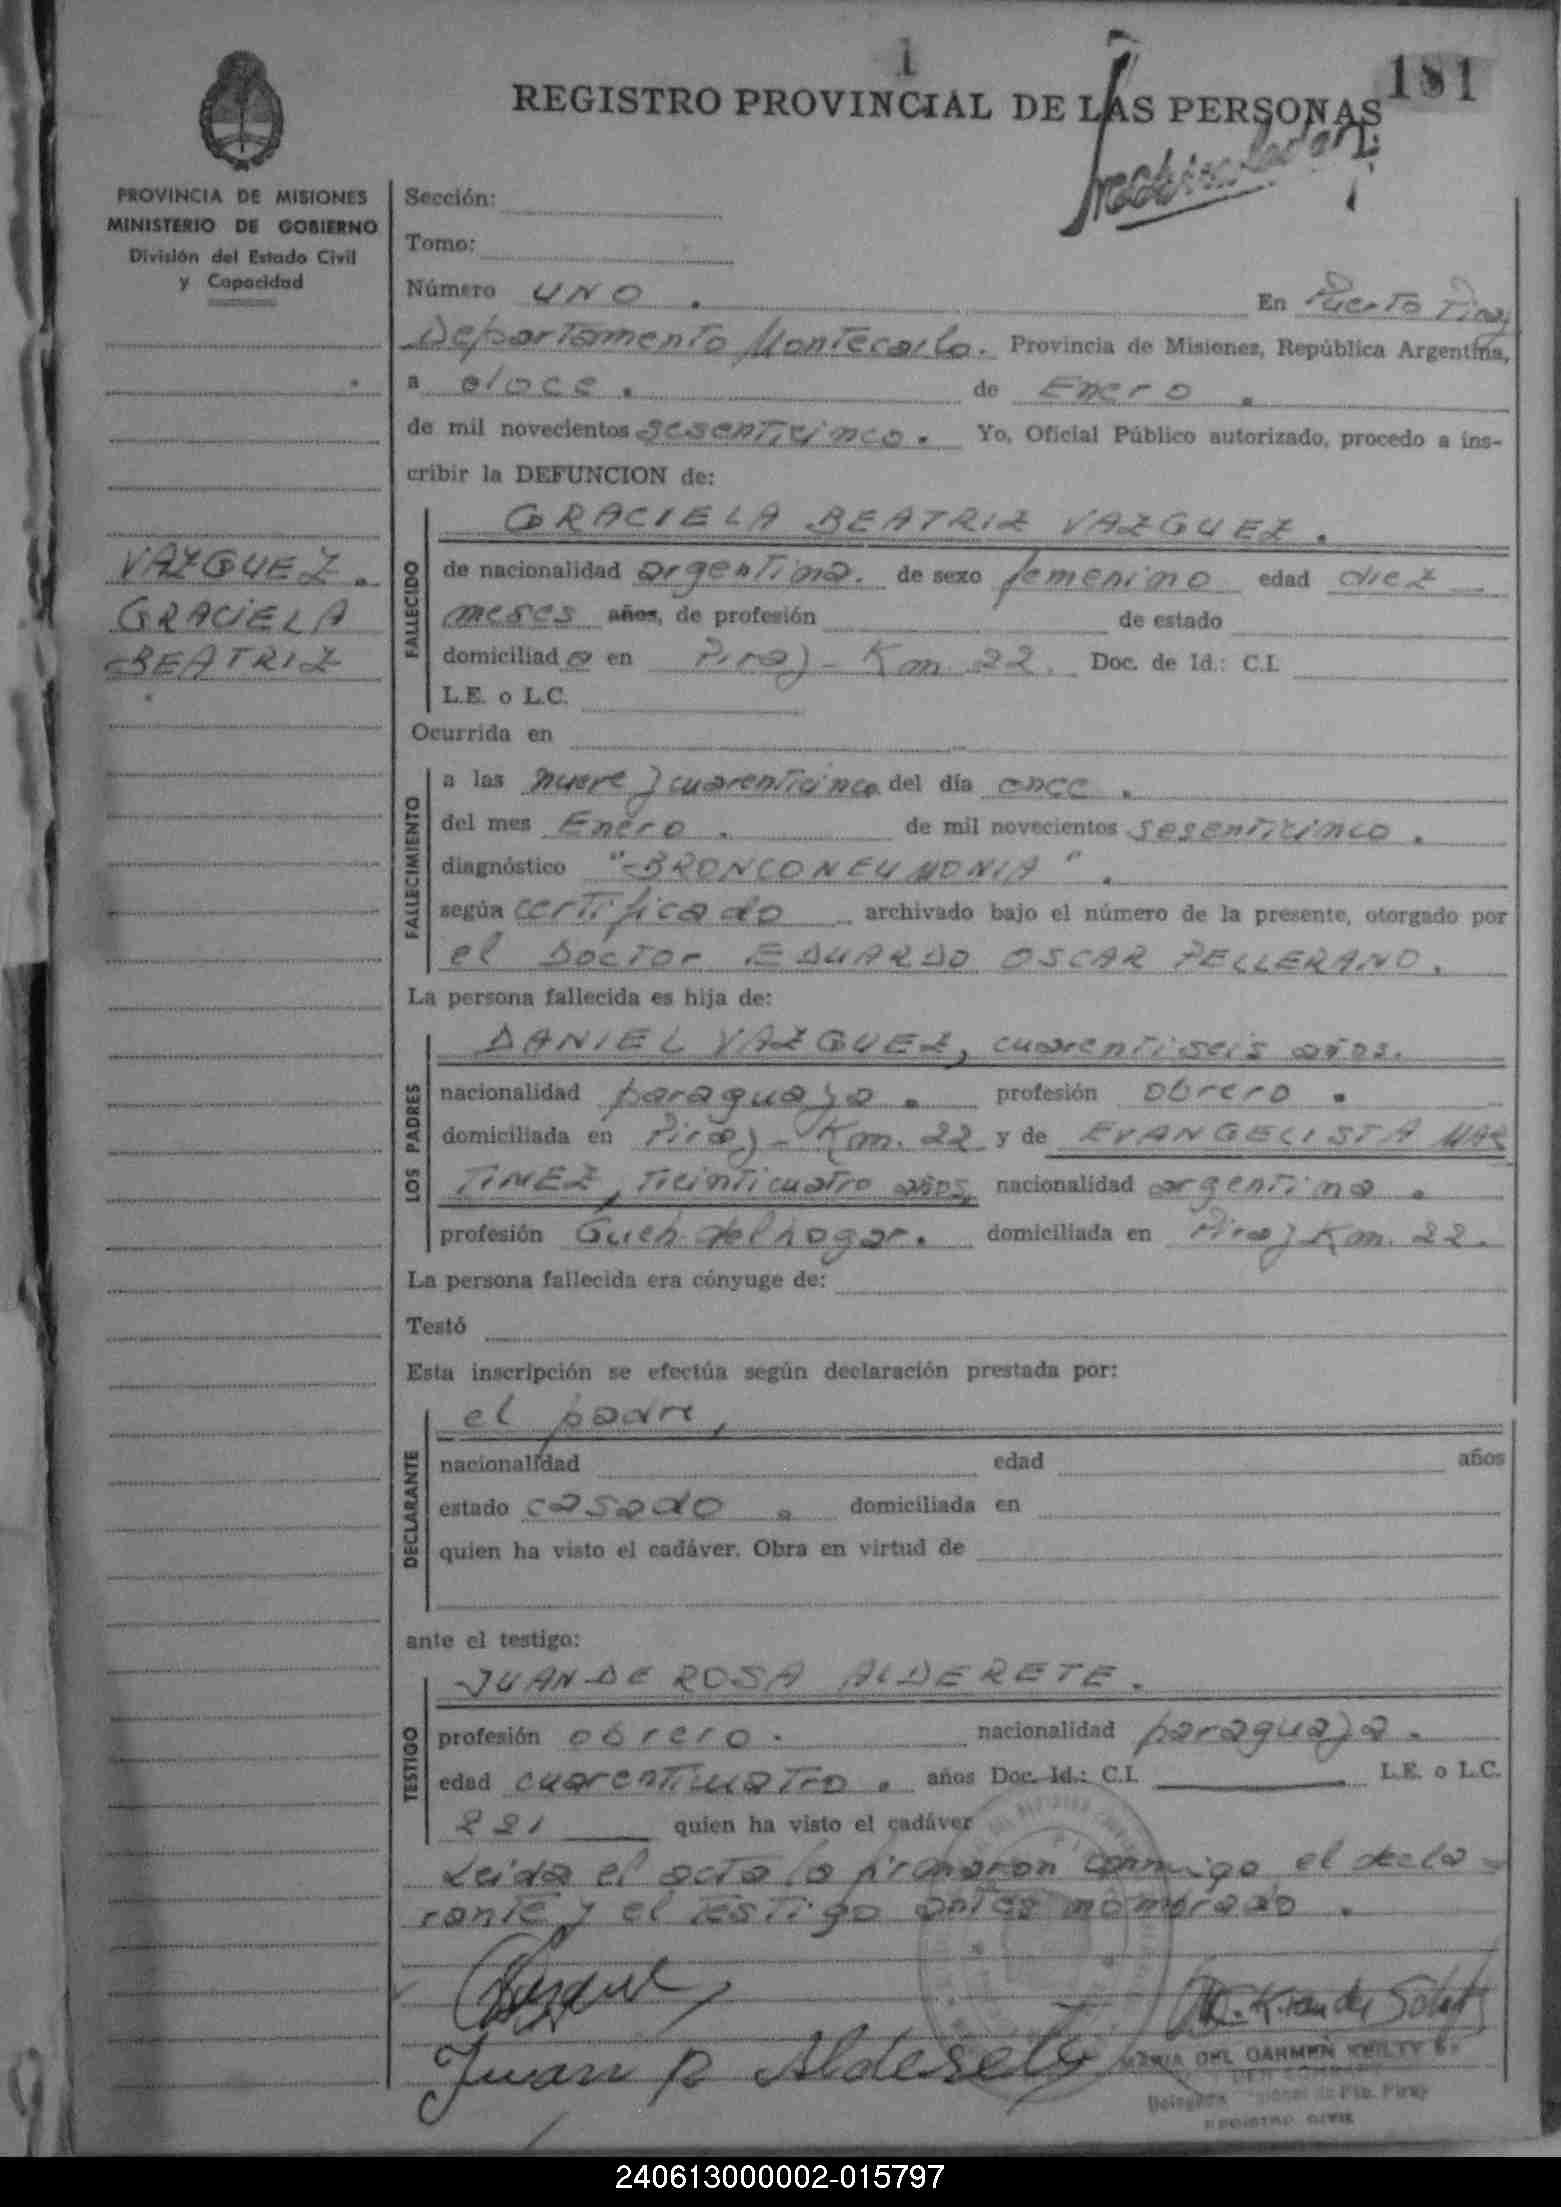 1
181
REGISTRO PROVINCIAL DE LAS PERSONAS
PROVINCIA DE MISIONES
MINISTERIO DE GOBIERNO
División del Estado Civil
y Capacidad
VAZGUEZ.
GRACIELA
BEATRIZ
Sección:
Tomo:
Número UNO. En Puerto Piray
Departamento Montecarlo. Provincia de Misiones, República Argentina,
a doce. de Enero.
de mil novecientos sesenticinco. Yo, Oficial Público autorizado, procedo a ins-
cribir la DEFUNCION de:
FALLECIDO
GRACIELA BEATRIZ VAZGUEZ.
de nacionalidad argentina. de sexo femenino edad diez
meses años, de profesión de estado
domiciliada en Piray - Km. 22. Doc. de Id.: C.I.
L.E. o L.C.
Ocurrida en
FALLECIMIENTO
a las nueve y cuarenticinco del día once.
del mes Enero. de mil novecientos sesenticinco.
diagnóstico "BRONCONEUMONIA".
según certificado archivado bajo el número de la presente, otorgado por
el Doctor EDUARDO OSCAR PELLERANO.
La persona fallecida es hija de:
LOS PADRES
DANIEL VAZGUEZ, cuarentiseis años.
nacionalidad paraguaya. profesión obrero.
domiciliada en Piray - Km. 22 y de EVANGELISTA MAR
TINEZ, treinticuatro años, nacionalidad argentina.
profesión Queh. del hogar. domiciliada en Piray Km. 22.
La persona fallecida era cónyuge de:
Testó
Esta inscripción se efectúa según declaración prestada por:
DECLARANTE
el padre,
nacionalidad edad años
estado casado. domiciliada en
quien ha visto el cadáver. Obra en virtud de
ante el testigo:
TESTIGO
JUAN DE ROSA ALDERETE.
profesión obrero. nacionalidad paraguaya.
edad cuarenticuatro. años Doc. Id.: C.I. L.E. o L.C.
221 quien ha visto el cadáver
Leida el acta la firmaron conmigo el decla-
rante y el testigo antes nombrado.
Juan R Alderete
MARIA DEL CARMEN
Piray
REGISTRO CIVIL
240613000002-015797